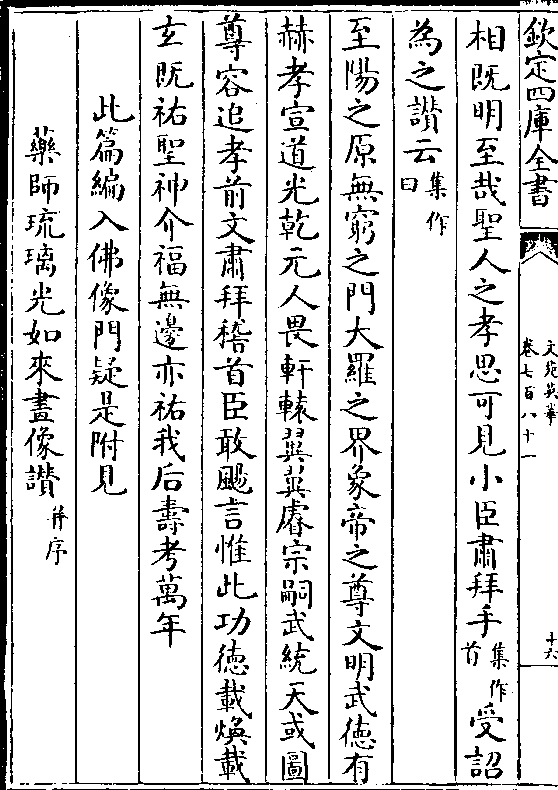 欽定四庫全書
文苑英華
卷七百八十一
十六
相既明至哉聖人之孝思可見小臣肅拜手集作首受詔
為之讃云集作曰
至陽之原無窮之門大羅之界象帝之尊文明武徳有
赫孝宣道光乾元人畏軒轅翼翼睿宗嗣武統天或圖
尊容追孝前文肅拜稽首臣敢颺言惟此功徳載煥載
玄既祐聖神介福無邊亦祐我后壽考萬年
此篇編入佛像門疑是附見
藥師琉璃光如來畫像讃并序